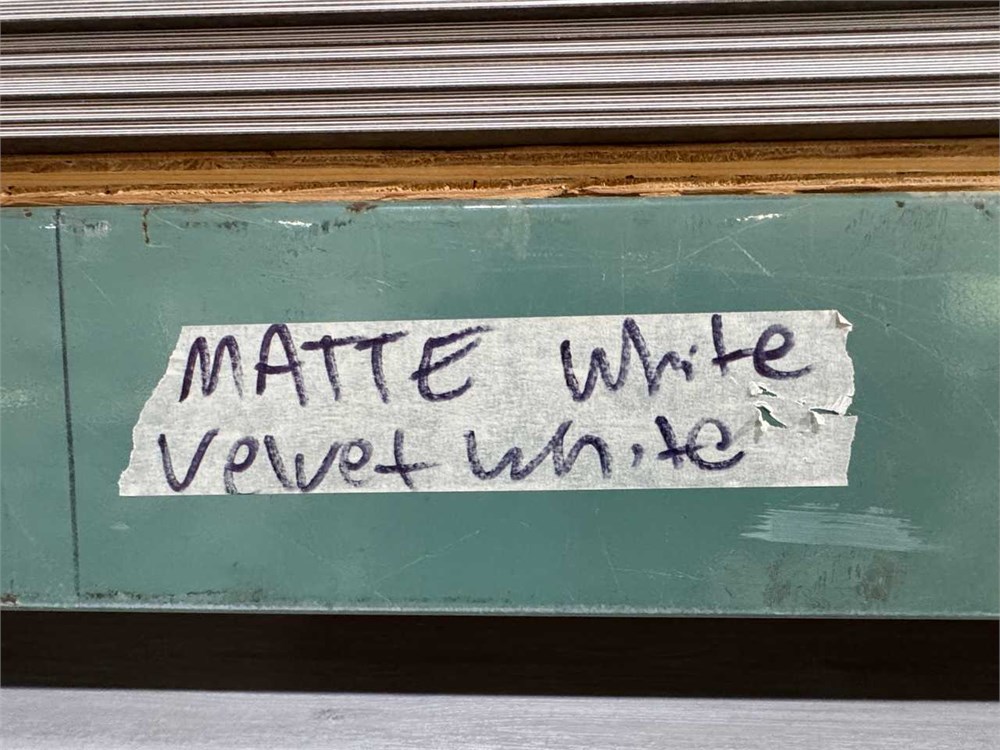 MATTE white
Velvet white